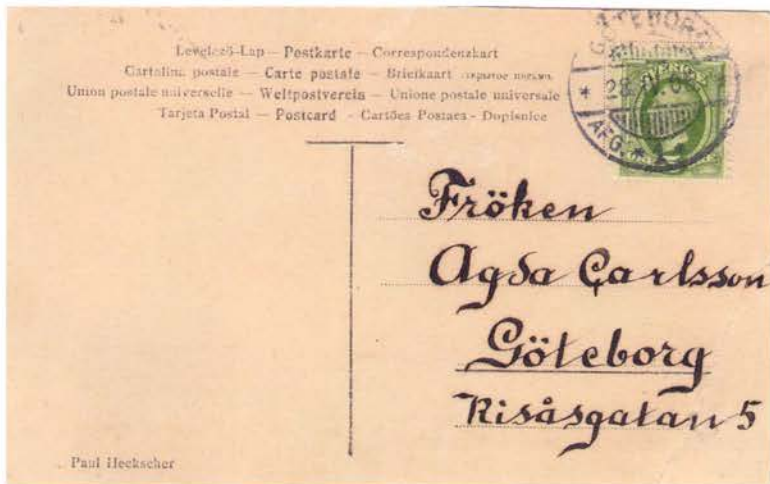 Levelező-Lap — Postkarte — Correspondenzkart
Cartolina postale — Carte postale — Briefkaart
Union postale universelle — Weltpostverein — Unione postale universale
Tarjeta Postal — Postcard - Cartões Postaes - Dopisnice
GÖTEBORG
SVERIGE
AFG.
Fröken
Agda Carlsson
Göteborg
Risåsgatan 5
Paul Heckscher